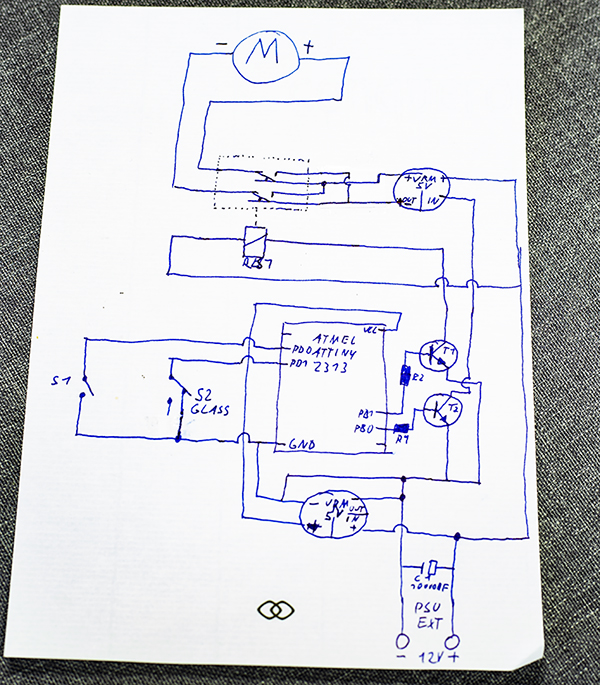 - M +
+ VRM +
5V
OUT IN
ATMEL
VCC
PD0 ATTINY
PD1 2313
T1
S1
S2
GLASS
R2
T2
PB1
PB0
R1
GND
- VRM OUT
5V IN
+
C
PSU
EXT
- 12V +